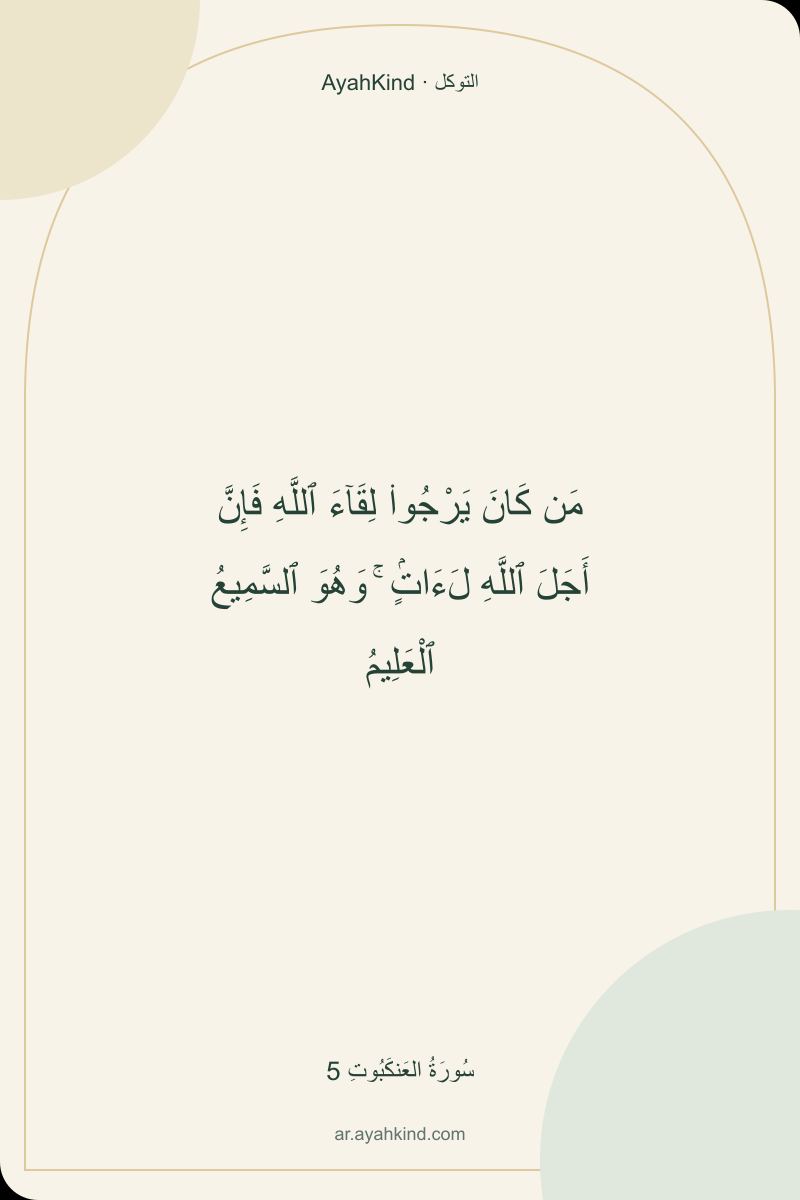 التوكل · AyahKind
مَن كَانَ يَرْجُوا۟ لِقَآءَ ٱللَّهِ فَإِنَّ
أَجَلَ ٱللَّهِ لَـَٔاتٍۢ ۚ وَهُوَ ٱلسَّمِيعُ
ٱلْعَلِيمُ
سُورَةُ العَنكَبُوتِ 5
ar.ayahkind.com